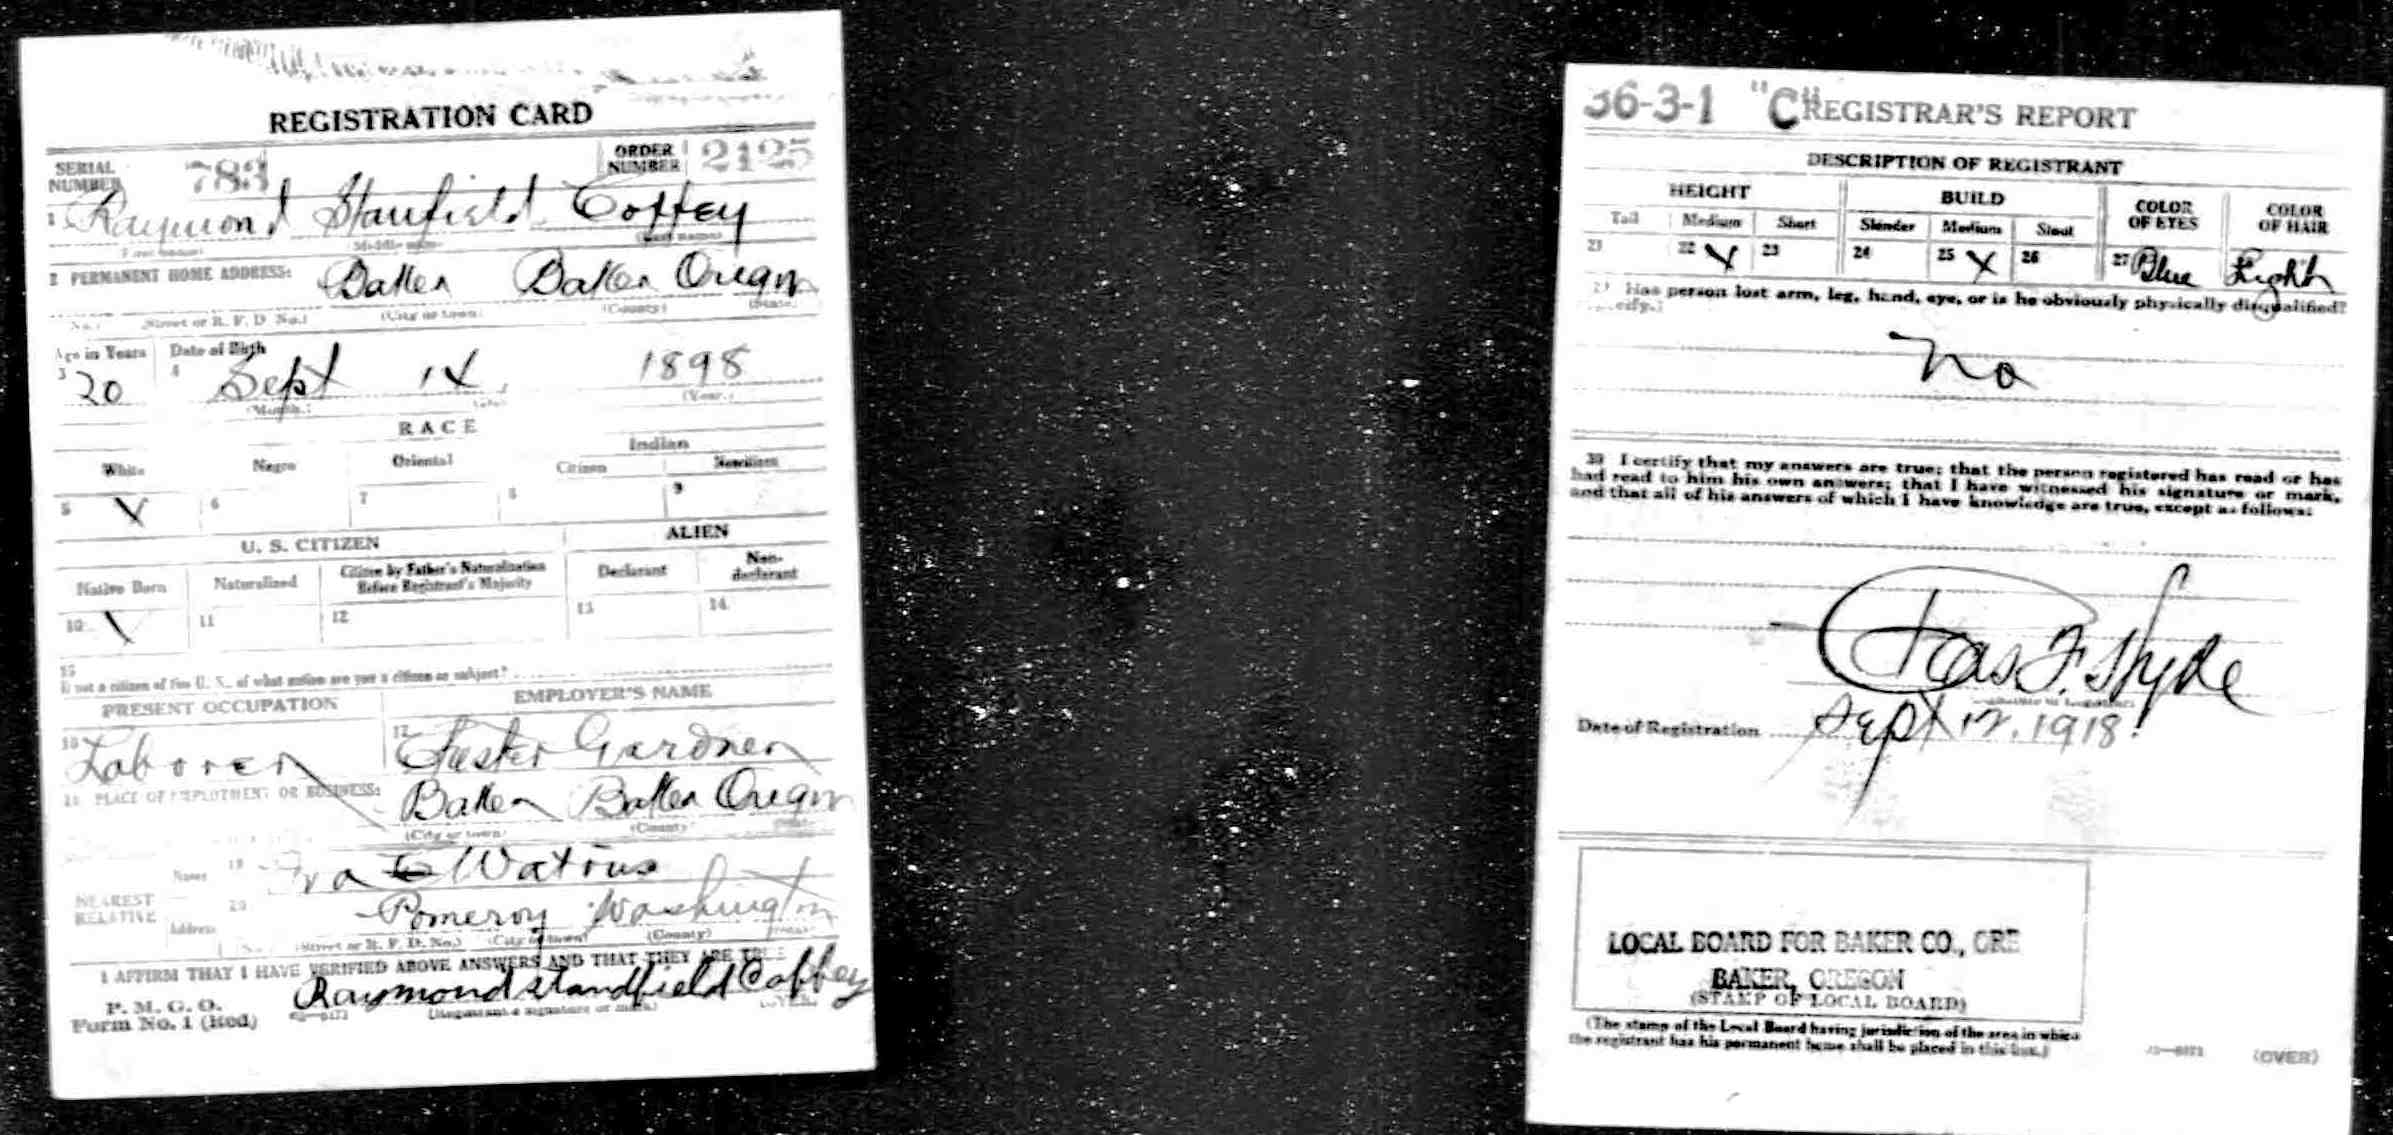 REGISTRATION CARD
SERIAL NUMBER 783 ORDER NUMBER 2125
1 Raymond Stanfield Coffey
(First name) (Middle name) (Last name)
2 PERMANENT HOME ADDRESS: Baker Baker Oregon
(No.) (Street or R. F. D. No.) (City or town) (County) (State)
Age in Years Date of Birth
3 20 4 Sept 14 1898
(Month.) (Day.) (Year.)
RACE
White Negro Oriental Indian
Citizen Noncitizen
5 X 6 7 8 9
U. S. CITIZEN ALIEN
Native Born Naturalized Citizen by Father's Naturalization Before Registrant's Majority Declarant Non-declarant
10 X 11 12 13 14
15 If not a citizen of the U. S., of what nation are you a citizen or subject?
PRESENT OCCUPATION EMPLOYER'S NAME
16 Laborer 17 Gardner
18 PLACE OF EMPLOYMENT OR BUSINESS:
Baker Baker Oregon
(City or town) (County)
NEAREST RELATIVE Name 19 Watrus
Address 20 Pomeroy Washington
(No.) (Street or R. F. D. No.) (City or town) (County) (State)
I AFFIRM THAT I HAVE VERIFIED ABOVE ANSWERS AND THAT THEY ARE TRUE
P. M. G. O.
Form No. 1 (Red) Raymond Standfield Coffey
(Registrant's signature or mark)
36-3-1 "C" REGISTRAR'S REPORT
DESCRIPTION OF REGISTRANT
HEIGHT BUILD COLOR OF EYES COLOR OF HAIR
Tall Medium Short Slender Medium Stout
21 22 X 23 24 25 X 26 27 Blue 28 Light
29 Has person lost arm, leg, hand, eye, or is he obviously physically disqualified?
(Specify.)
No
30 I certify that my answers are true; that the person registered has read or has
had read to him his own answers; that I have witnessed his signature or mark,
and that all of his answers of which I have knowledge are true, except as follows:
Chas F. Hyde
(Signature of Registrar)
Date of Registration Sept 12, 1918
LOCAL BOARD FOR BAKER CO., ORE
BAKER, OREGON
(STAMP OF LOCAL BOARD)
(The stamp of the Local Board having jurisdiction of the area in which
the registrant has his permanent home shall be placed in this box.)
(OVER)